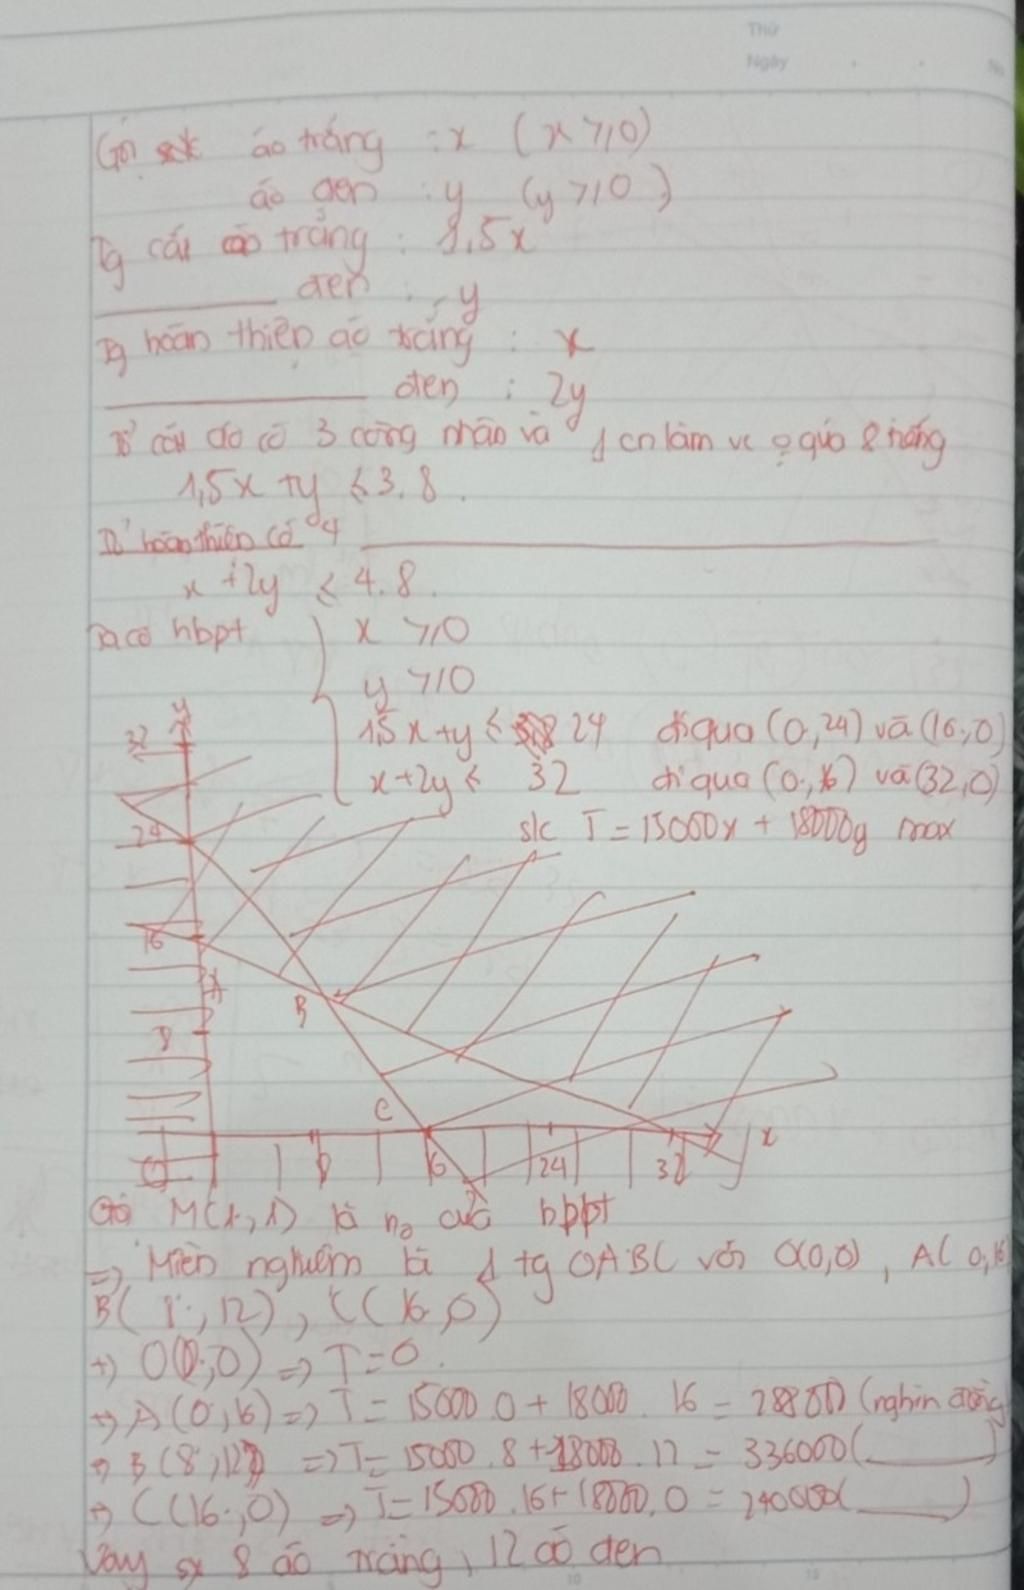 Thứ
Ngày
Gọi áo trắng : x (x ≥ 0)
áo đen : y (y ≥ 0)
Tg cắt áo trắng : 1,5x
đen : y
Tg hoàn thiện áo trắng : x
đen : 2y
Tổ cắt do có 3 công nhân và 1 cn làm vc o quá 8 tiếng
1,5x + y ≤ 3.8
Tổ hoàn thiện có 4
x + 2y ≤ 4.8
Ta có hbpt { x ≥ 0
y ≥ 0
1,5x + y ≤ 24 đi qua (0,24) và (16,0)
x + 2y ≤ 32 đi qua (0,16) và (32,0)
s/c T = 15000x + 18000y max
y
32
24
16
A
B
8
C
O 8 16 24 32 x
Có M(1,1) là n0 của bppt
=> Miền nghiệm là 1 tg OABC với O(0,0), A(0,16)
B(8,12), C(16,0)
+) O(0,0) => T = 0
+) A(0,16) => T = 15000.0 + 18000.16 = 288000 (nghìn đồng
+) B(8,12) => T = 15000.8 + 18000.12 = 336000 ( )
+) C(16,0) => T = 15000.16 + 18000.0 = 240000 ( )
Vậy sx 8 áo trắng, 12 áo đen